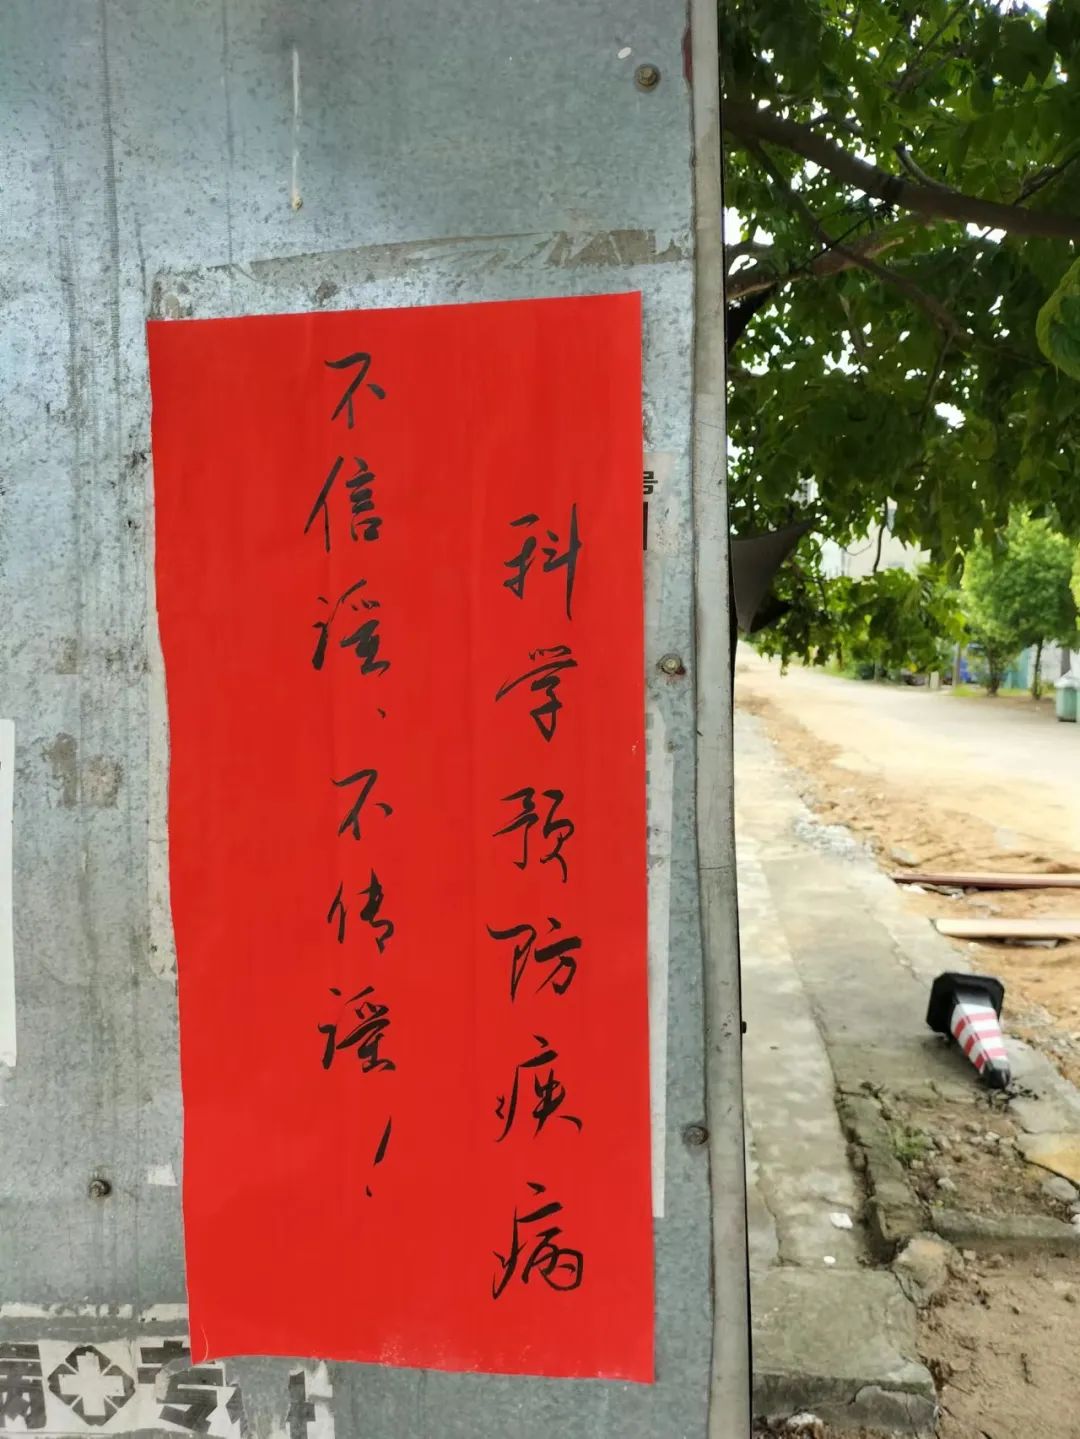 科学预防疾病
不信谣、不传谣！
病 专科
号